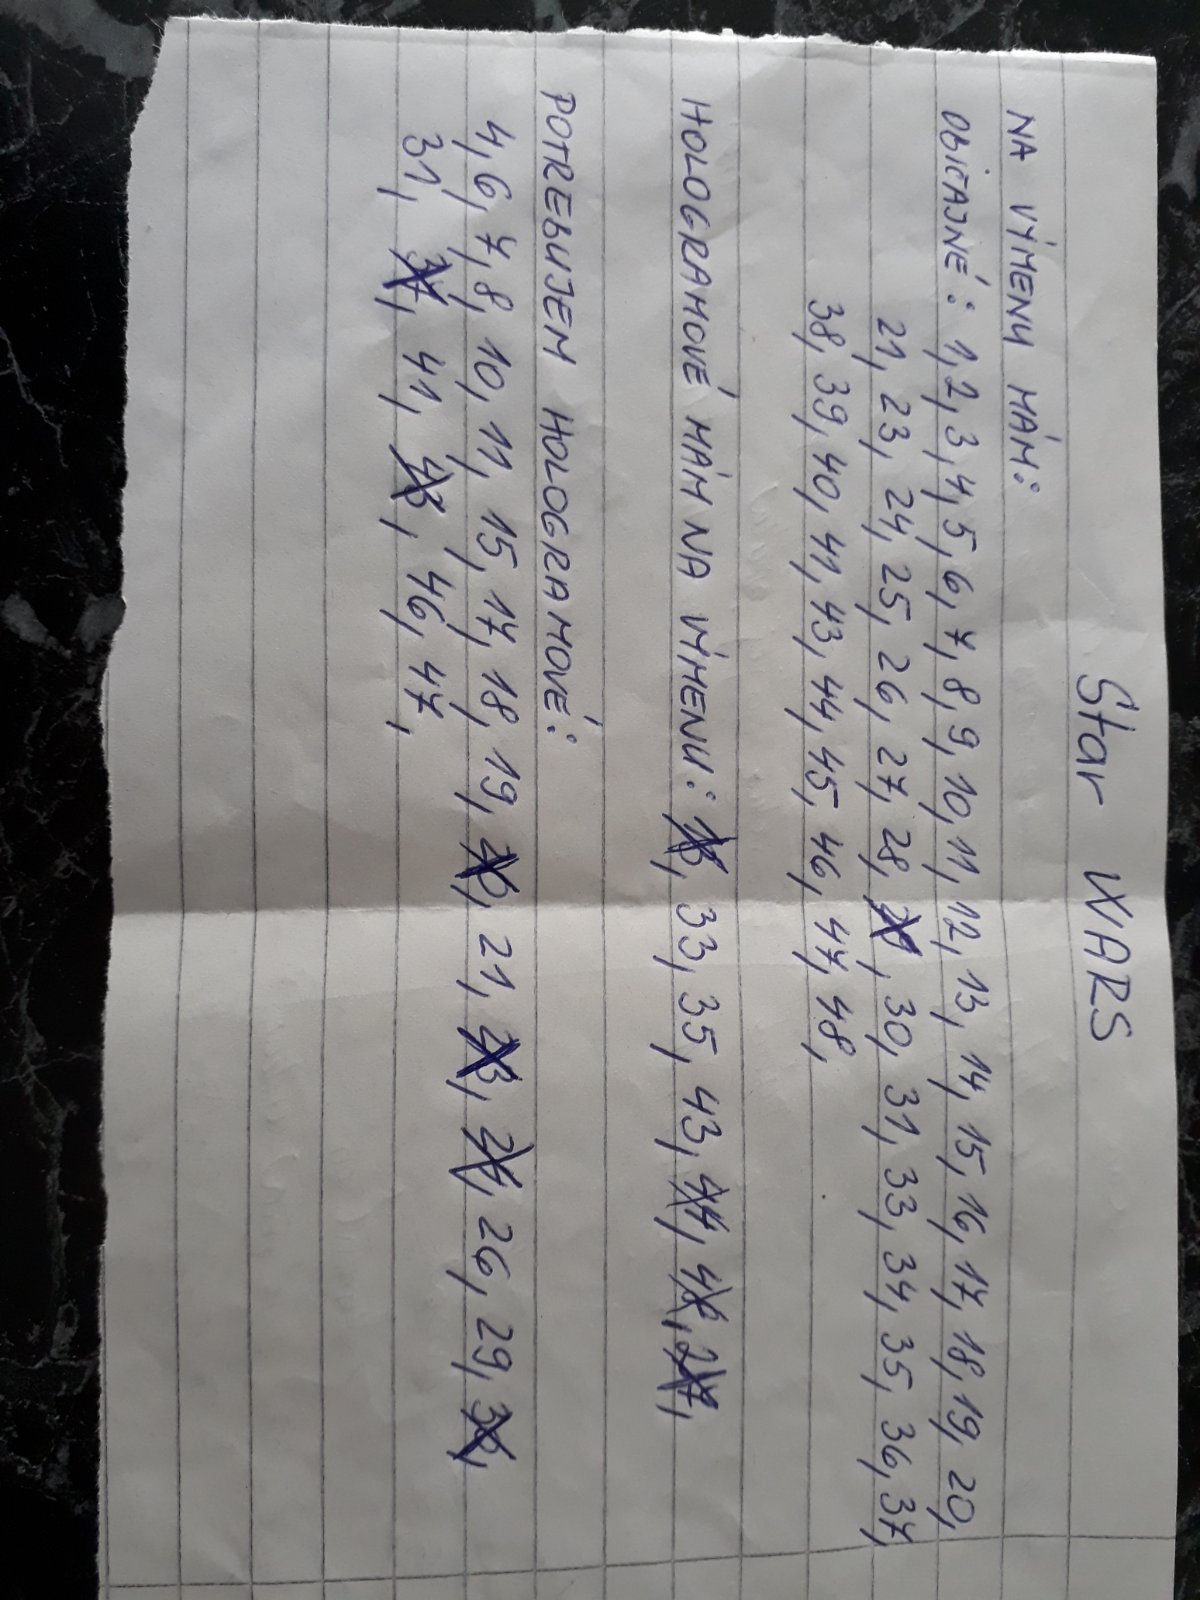 Star WARS
NA VÝMENU MÁM:
OBIČAJNÉ: 1, 2, 3, 4, 5, 6, 7, 8, 9, 10, 11, 12, 13, 14, 15, 16, 17, 18, 19, 20,
21, 23, 24, 25, 26, 27, 28, 30, 31, 33, 34, 35, 36, 37,
38, 39, 40, 41, 43, 44, 45, 46, 47, 48,
HOLOGRAMOVÉ MÁM NA VÝMENU: 33, 35, 43, 44, 27,
POTREBUJEM HOLOGRAMOVÉ:
4, 6, 7, 8, 10, 11, 15, 17, 18, 19, 20, 21, 23, 24, 26, 29, 30,
31, 37, 41, 43, 46, 47,